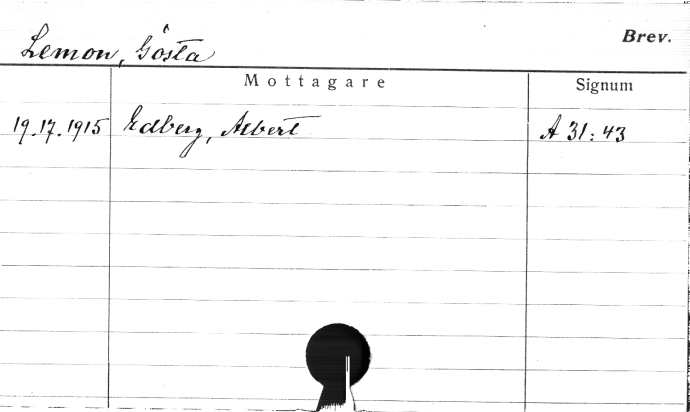 Brev.
Lemon, Gösta
Mottagare Signum
19.17.1915 Edberg, Albert A 31:43